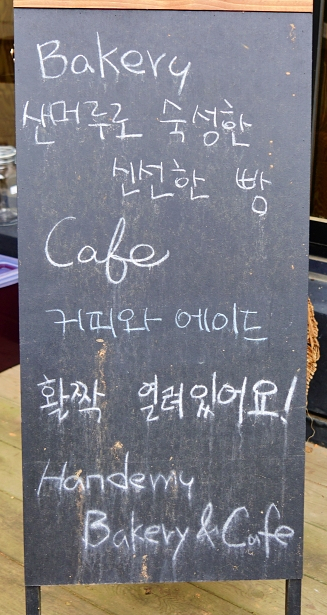 Bakery
산머루로 숙성한
신선한 빵
Cafe
커피와 에이드
활짝 열려있어요!
Handemy
Bakery & Cafe